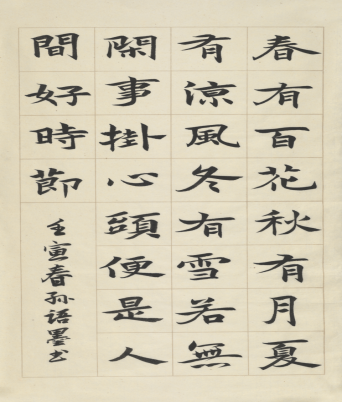 春有百花秋有月夏
有涼風冬有雪若無
閑事掛心頭便是人
間好時節
壬寅春孙语墨书